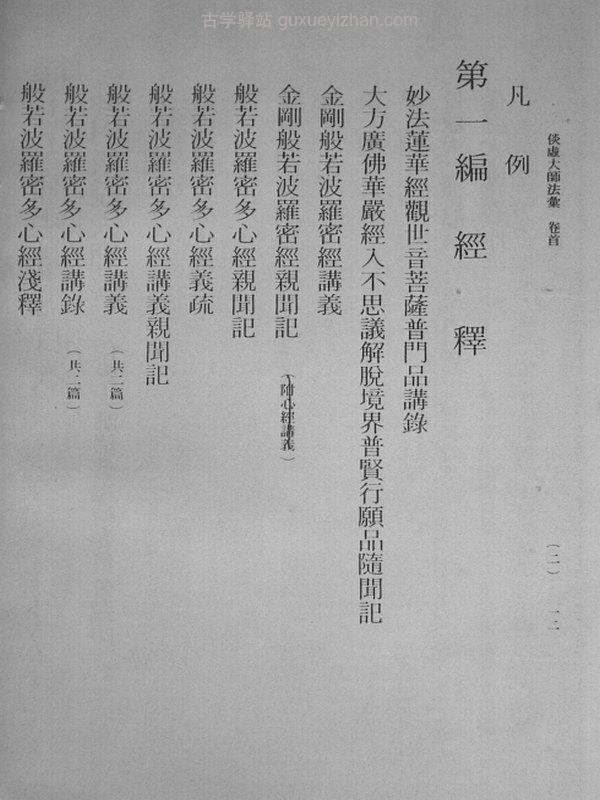 古学驿站 guxueyizhan.com
倓虛大師法彙 卷首
(二) 一二
凡例
第一編 經釋
妙法蓮華經觀世音菩薩普門品講錄
大方廣佛華嚴經入不思議解脫境界普賢行願品隨聞記
金剛般若波羅密經講義
金剛般若波羅密經親聞記 (附心經講義)
般若波羅密多心經親聞記
般若波羅密多心經義疏
般若波羅密多心經講義親聞記
般若波羅密多心經講義 (共二篇)
般若波羅密多心經講錄 (共二篇)
般若波羅密多心經淺釋